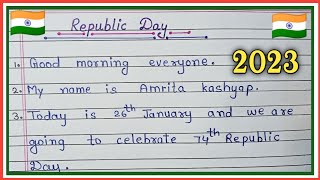 Republic Day
2023
1. Good morning everyone.
2. My name is Amrita kashyap.
3. Today is 26th January and we are
going to celebrate 74th Republic
Day.